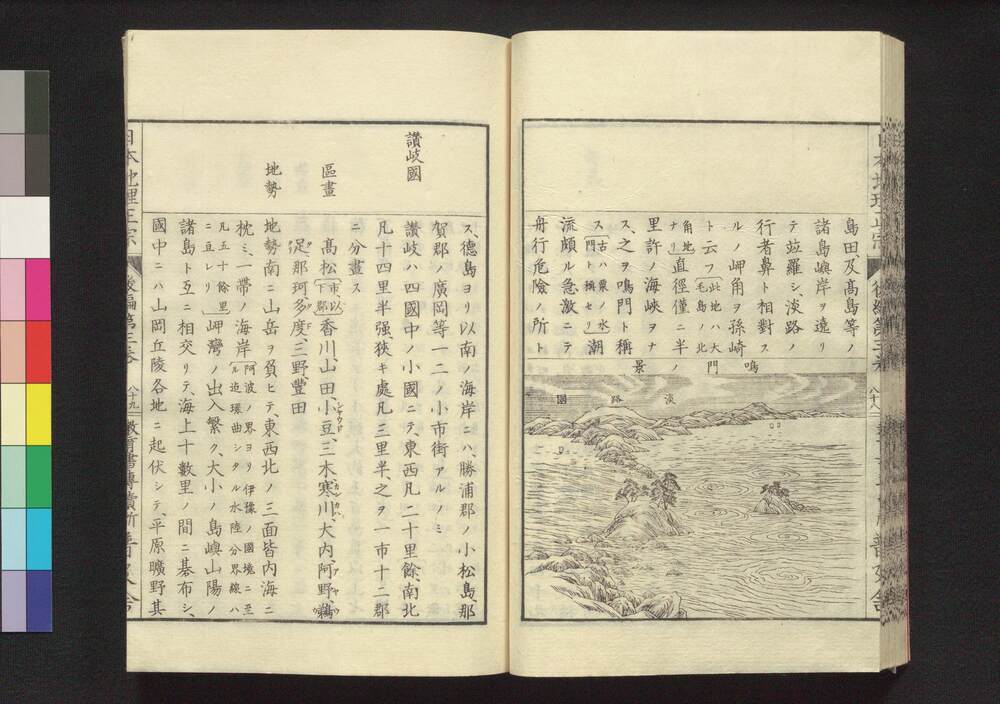 島田、及高島等ノ
諸島嶼岸ヲ遶リ
テ竝羅シ、淡路ノ
行者鼻ト相對ス
ルノ岬角ヲ孫崎
ト云フ〔此地ハ大毛島ノ北
角地ナリ〕直徑僅ニ半
里許ノ海峽ヲナ
ス、之ヲ鳴門ト稱
ス〔古ハ粟ノ水門ト稱セリ〕潮
流頗ル急激ニテ
舟行危險ノ所ト
鳴門ノ景
淡路國
ス、德島ヨリ以南ノ海岸ニハ、勝浦郡ノ小松島、那
賀郡ノ廣岡等一二ノ小市街アルノミ
讃岐國
讃岐ハ四國中ノ小國ニテ、東西凡二十里餘、南北
凡十四里半强、狹キ處凡三里半、之ヲ一市十二郡
ニ分畫ス
區畫
高松〔市、以下郡〕香川、山田、小豆、三木、寒川、大内、阿野、鵜
足、那珂、多度、三野、豐田
地勢
地勢南ニ山岳ヲ負ヒテ、東西北ノ三面皆内海ニ
枕ミ、一帶ノ海岸〔阿波ノ界ヨリ伊豫ノ國境ニ至ル迄環曲シタル水陸分界線ハ
凡五十餘里ニ亘レリ〕岬灣ノ出入繁ク、大小ノ島嶼山陽ノ
諸島ト互ニ相交リテ、海上十數里ノ間ニ碁布シ、
國中ニハ山岡丘陵各地ニ起伏シテ、平原曠野其
日本地理正宗
後編第三卷
八十九